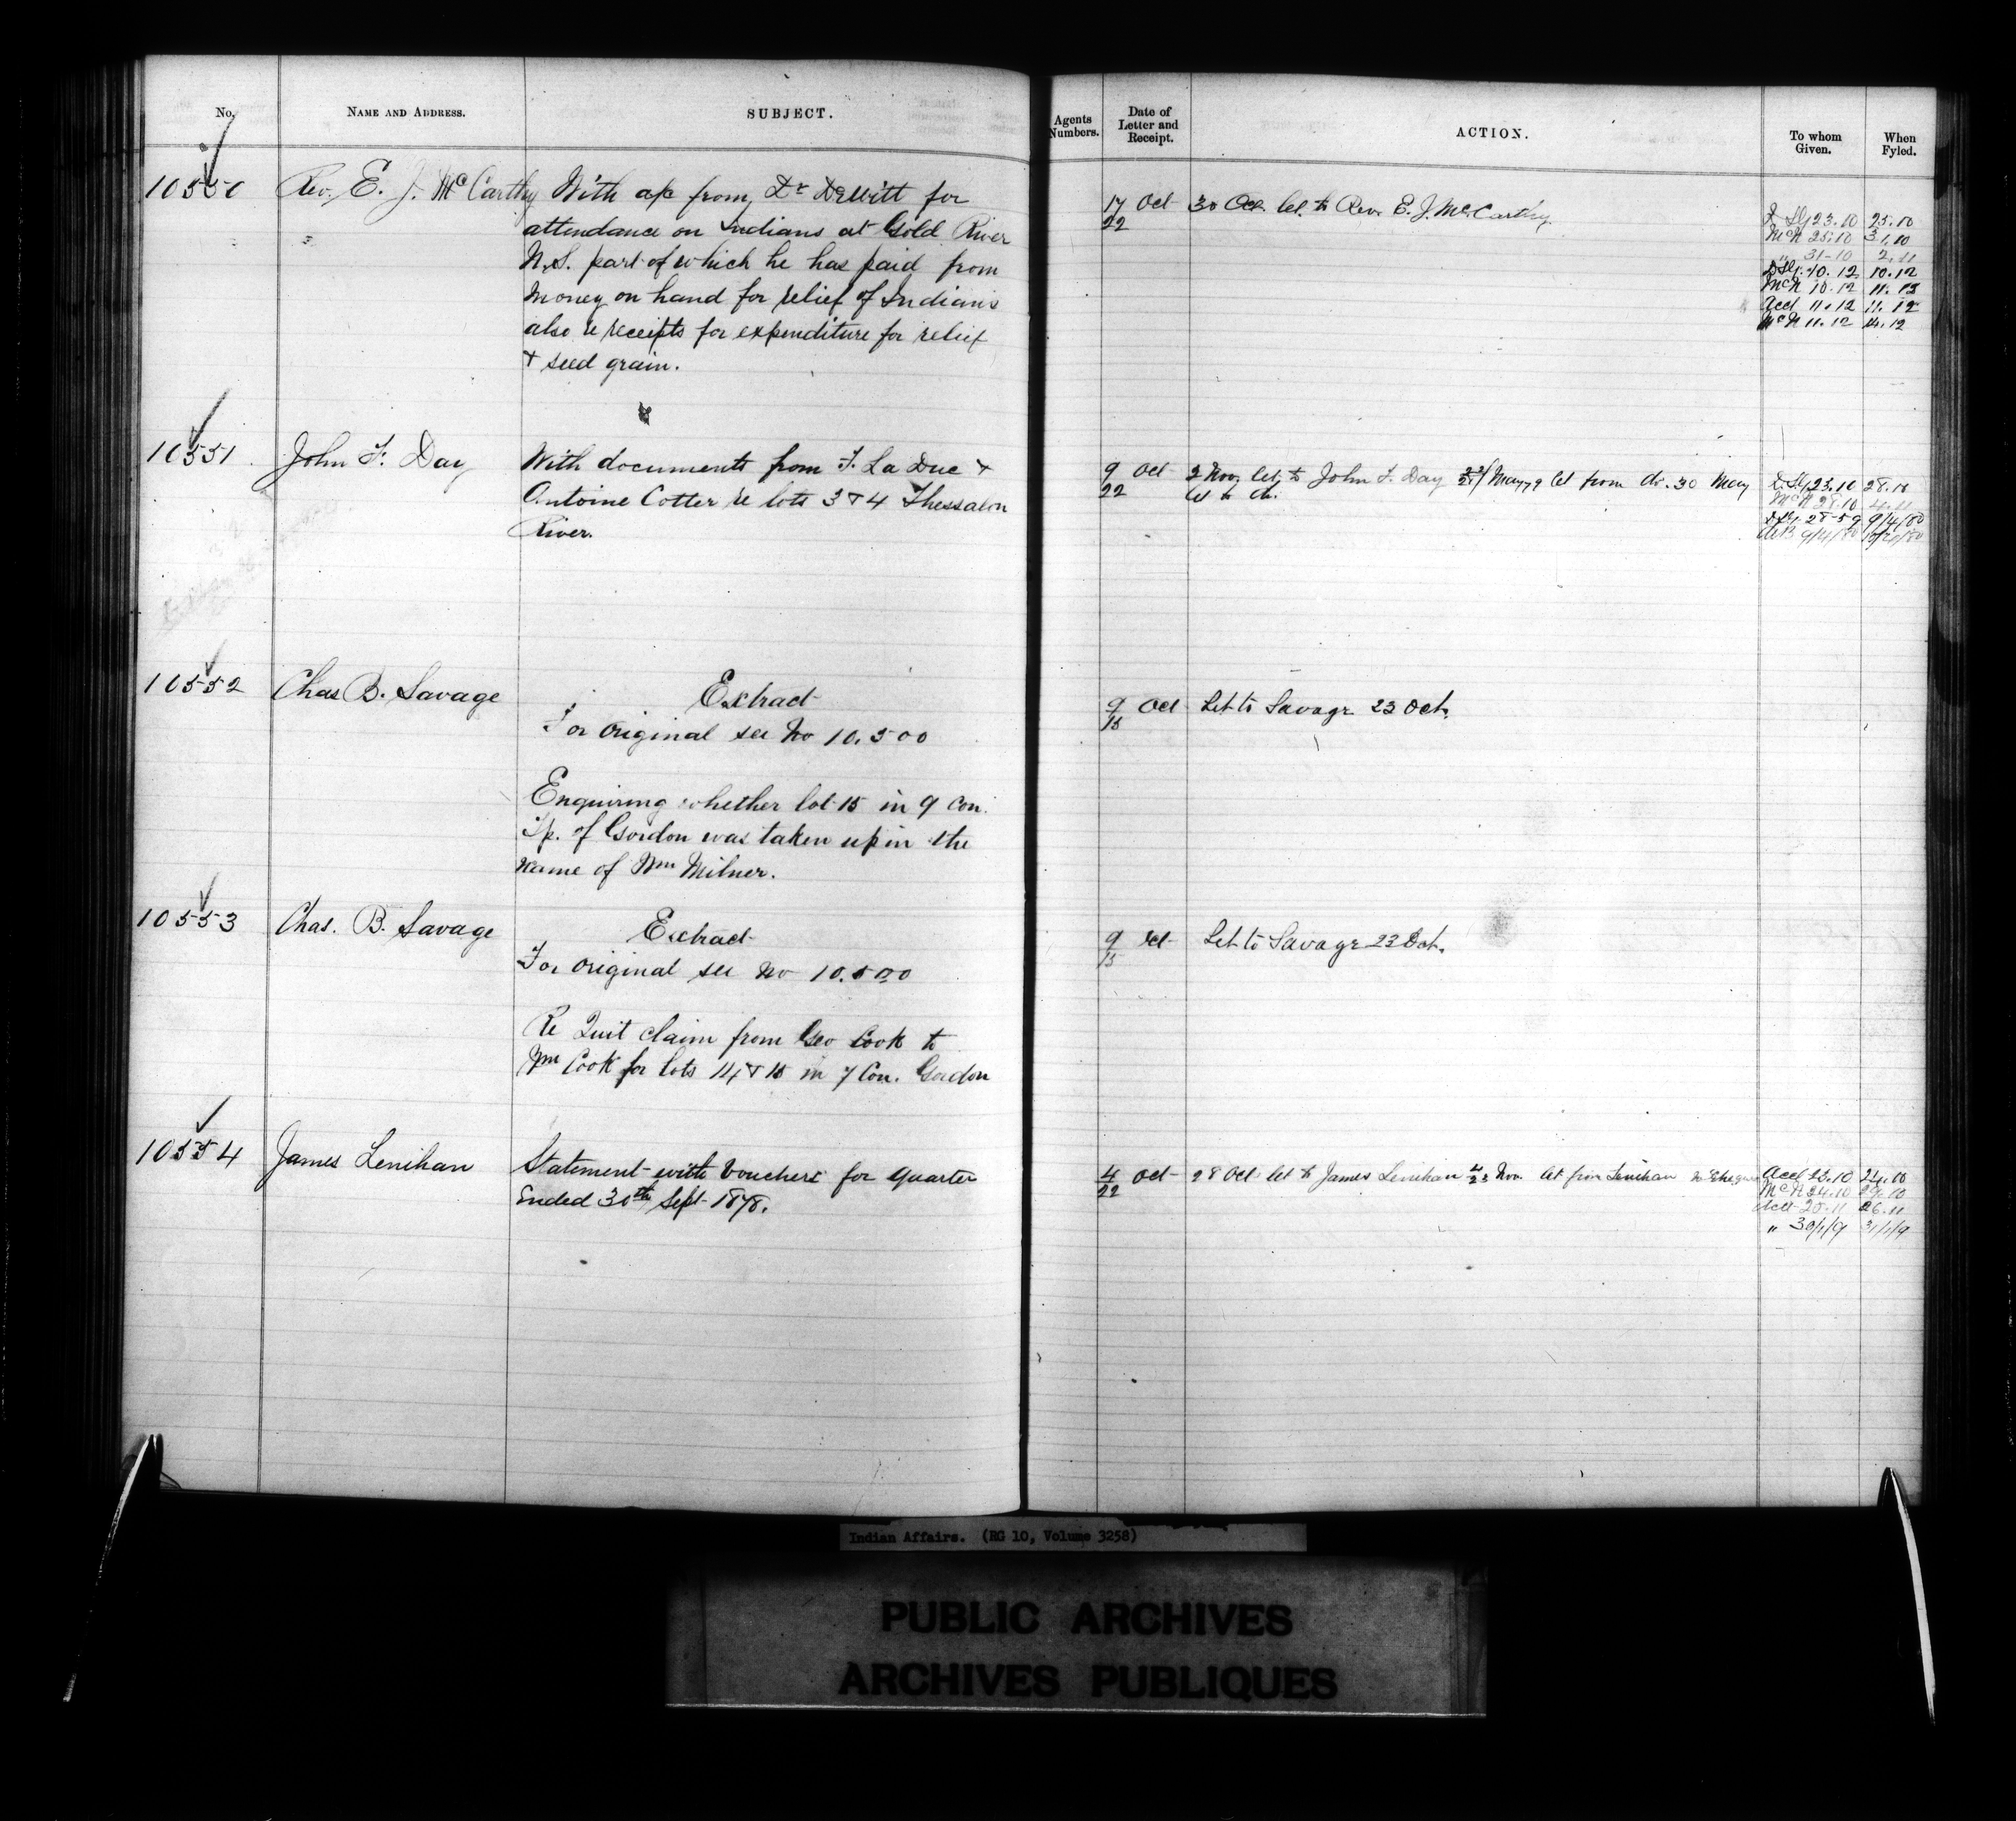 No.
NAME AND ADDRESS.
SUBJECT.
10550
Rev. E. J. McCarthy
With a/c from Dr DeWitt for
attendance on Indians at Gold River
N.S. part of which he has paid from
money on hand for relief of Indians
also re receipts for expenditure for relief
& seed grain.
10551
John F. Day
With documents from F. La Due &
Antoine Cotter re lots 3 & 4 Thessalon
River.
10552
Chas B. Savage
Extract
For original see No 10.500
Enquiring whether lot 15 in 9 Con.
Tp. of Gordon was taken up in the
name of Wm Milner.
10553
Chas. B. Savage
Extract
For original see No 10.500
Re Quit claim from Geo Cook to
Wm Cook for lots 14 & 15 in 7 Con. Gordon
10554
James Lenihan
Statement with vouchers for quarter
Ended 30th Sept 1878.
Agents Numbers.
Date of Letter and Receipt.
ACTION.
To whom Given.
When Fyled.
17/22 Oct
30 Oct. let. to Rev. E. J. McCarthy
23.10 25.10
McN 25.10 31.10
" 31-10 2.11
10.12 10.12
McN 10.12 11.12
Acct 11.12 11.12
McN 11.12 14.12
9/22 Oct
2 Nov. let. to John F. Day May 79 let from do. 30 May
let to do.
23.10 28.10
McN 28.10 4.11
28-5-9 9/4/80
9/4/80
9/15 Oct
Let to Savage 23 Oct.
9/15 Oct
Let to Savage 23 Oct.
4/22 Oct
28 Oct. let to James Lenihan Nov. let from Lenihan
Acct 23.10 24.10
McN 24.10 29.10
Acct 25.11 26.11
" 30/1/9 31/1/9
Indian Affairs. (RG 10, Volume 3258)
PUBLIC ARCHIVES
ARCHIVES PUBLIQUES